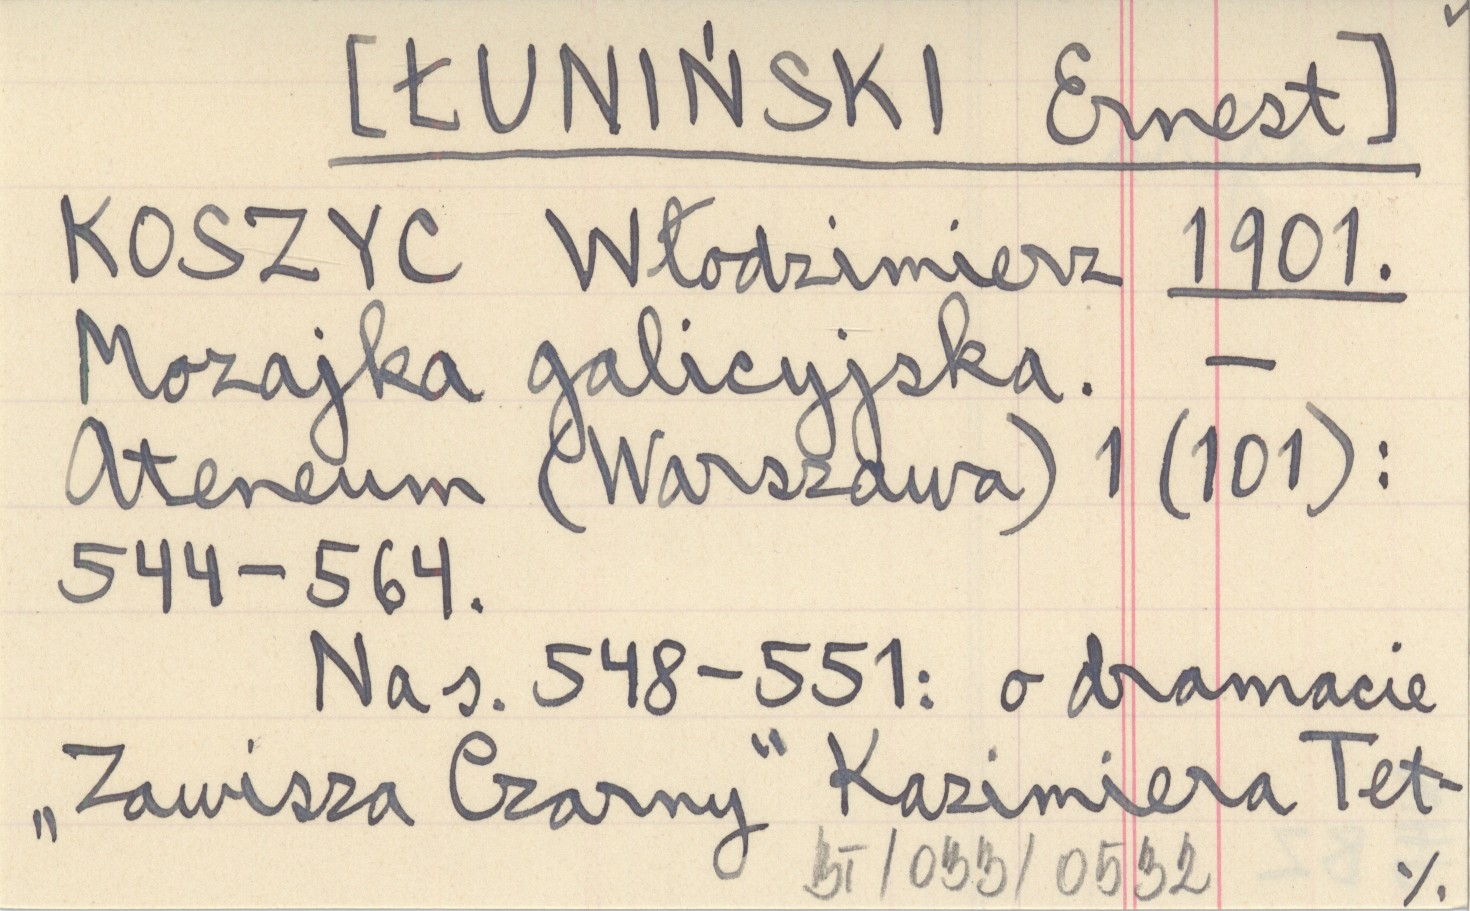 [ŁUNIŃSKI Ernest]
KOSZYC Włodzimierz 1901.
Mozajka galicyjska. —
Ateneum (Warszawa) 1 (101):
544-564.
Na s. 548-551: o dramacie
„Zawisza Czarny" Kazimiera Tet-
/033/0532 ./.